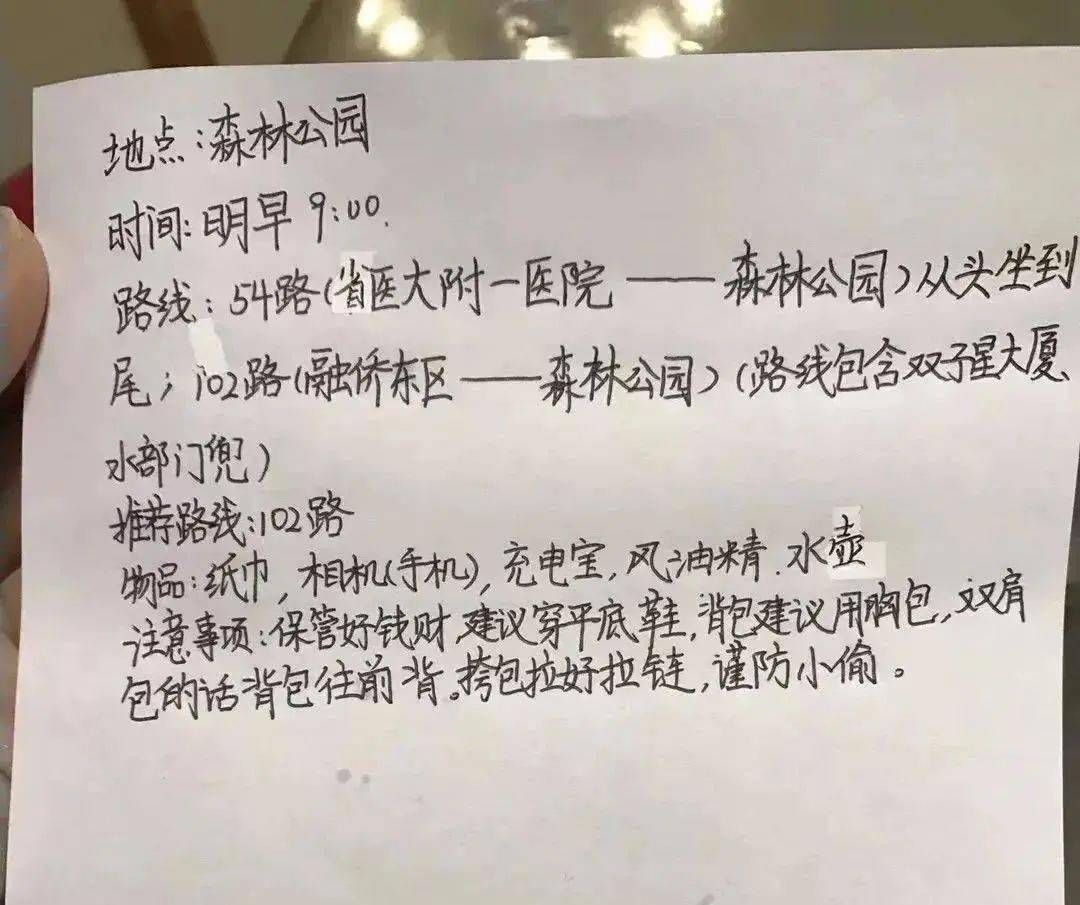 地点:森林公园
时间:明早9:00.
路线:54路(省医大附一医院——森林公园)从头坐到
尾;102路(融侨东区——森林公园)(路线包含双子星大厦、
水部门兜)
推荐路线:102路
物品:纸巾,相机(手机),充电宝,风油精.水壶
注意事项:保管好钱财,建议穿平底鞋,背包建议用胸包,双肩
包的话背包往前背。挎包拉好拉链,谨防小偷。